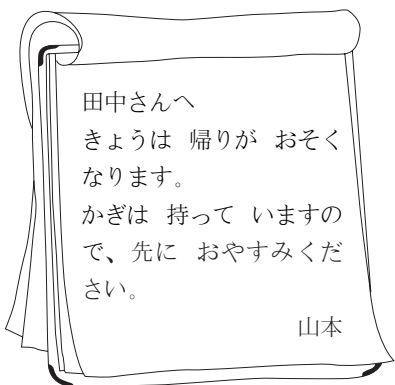 田中さんへ
きょうは 帰りが おそく
なります。
かぎは 持って いますの
で、先に おやすみくだ
さい。
山本